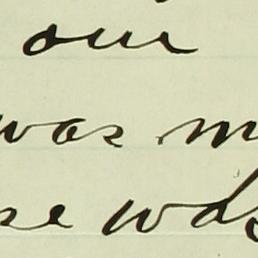 our
was m
se was